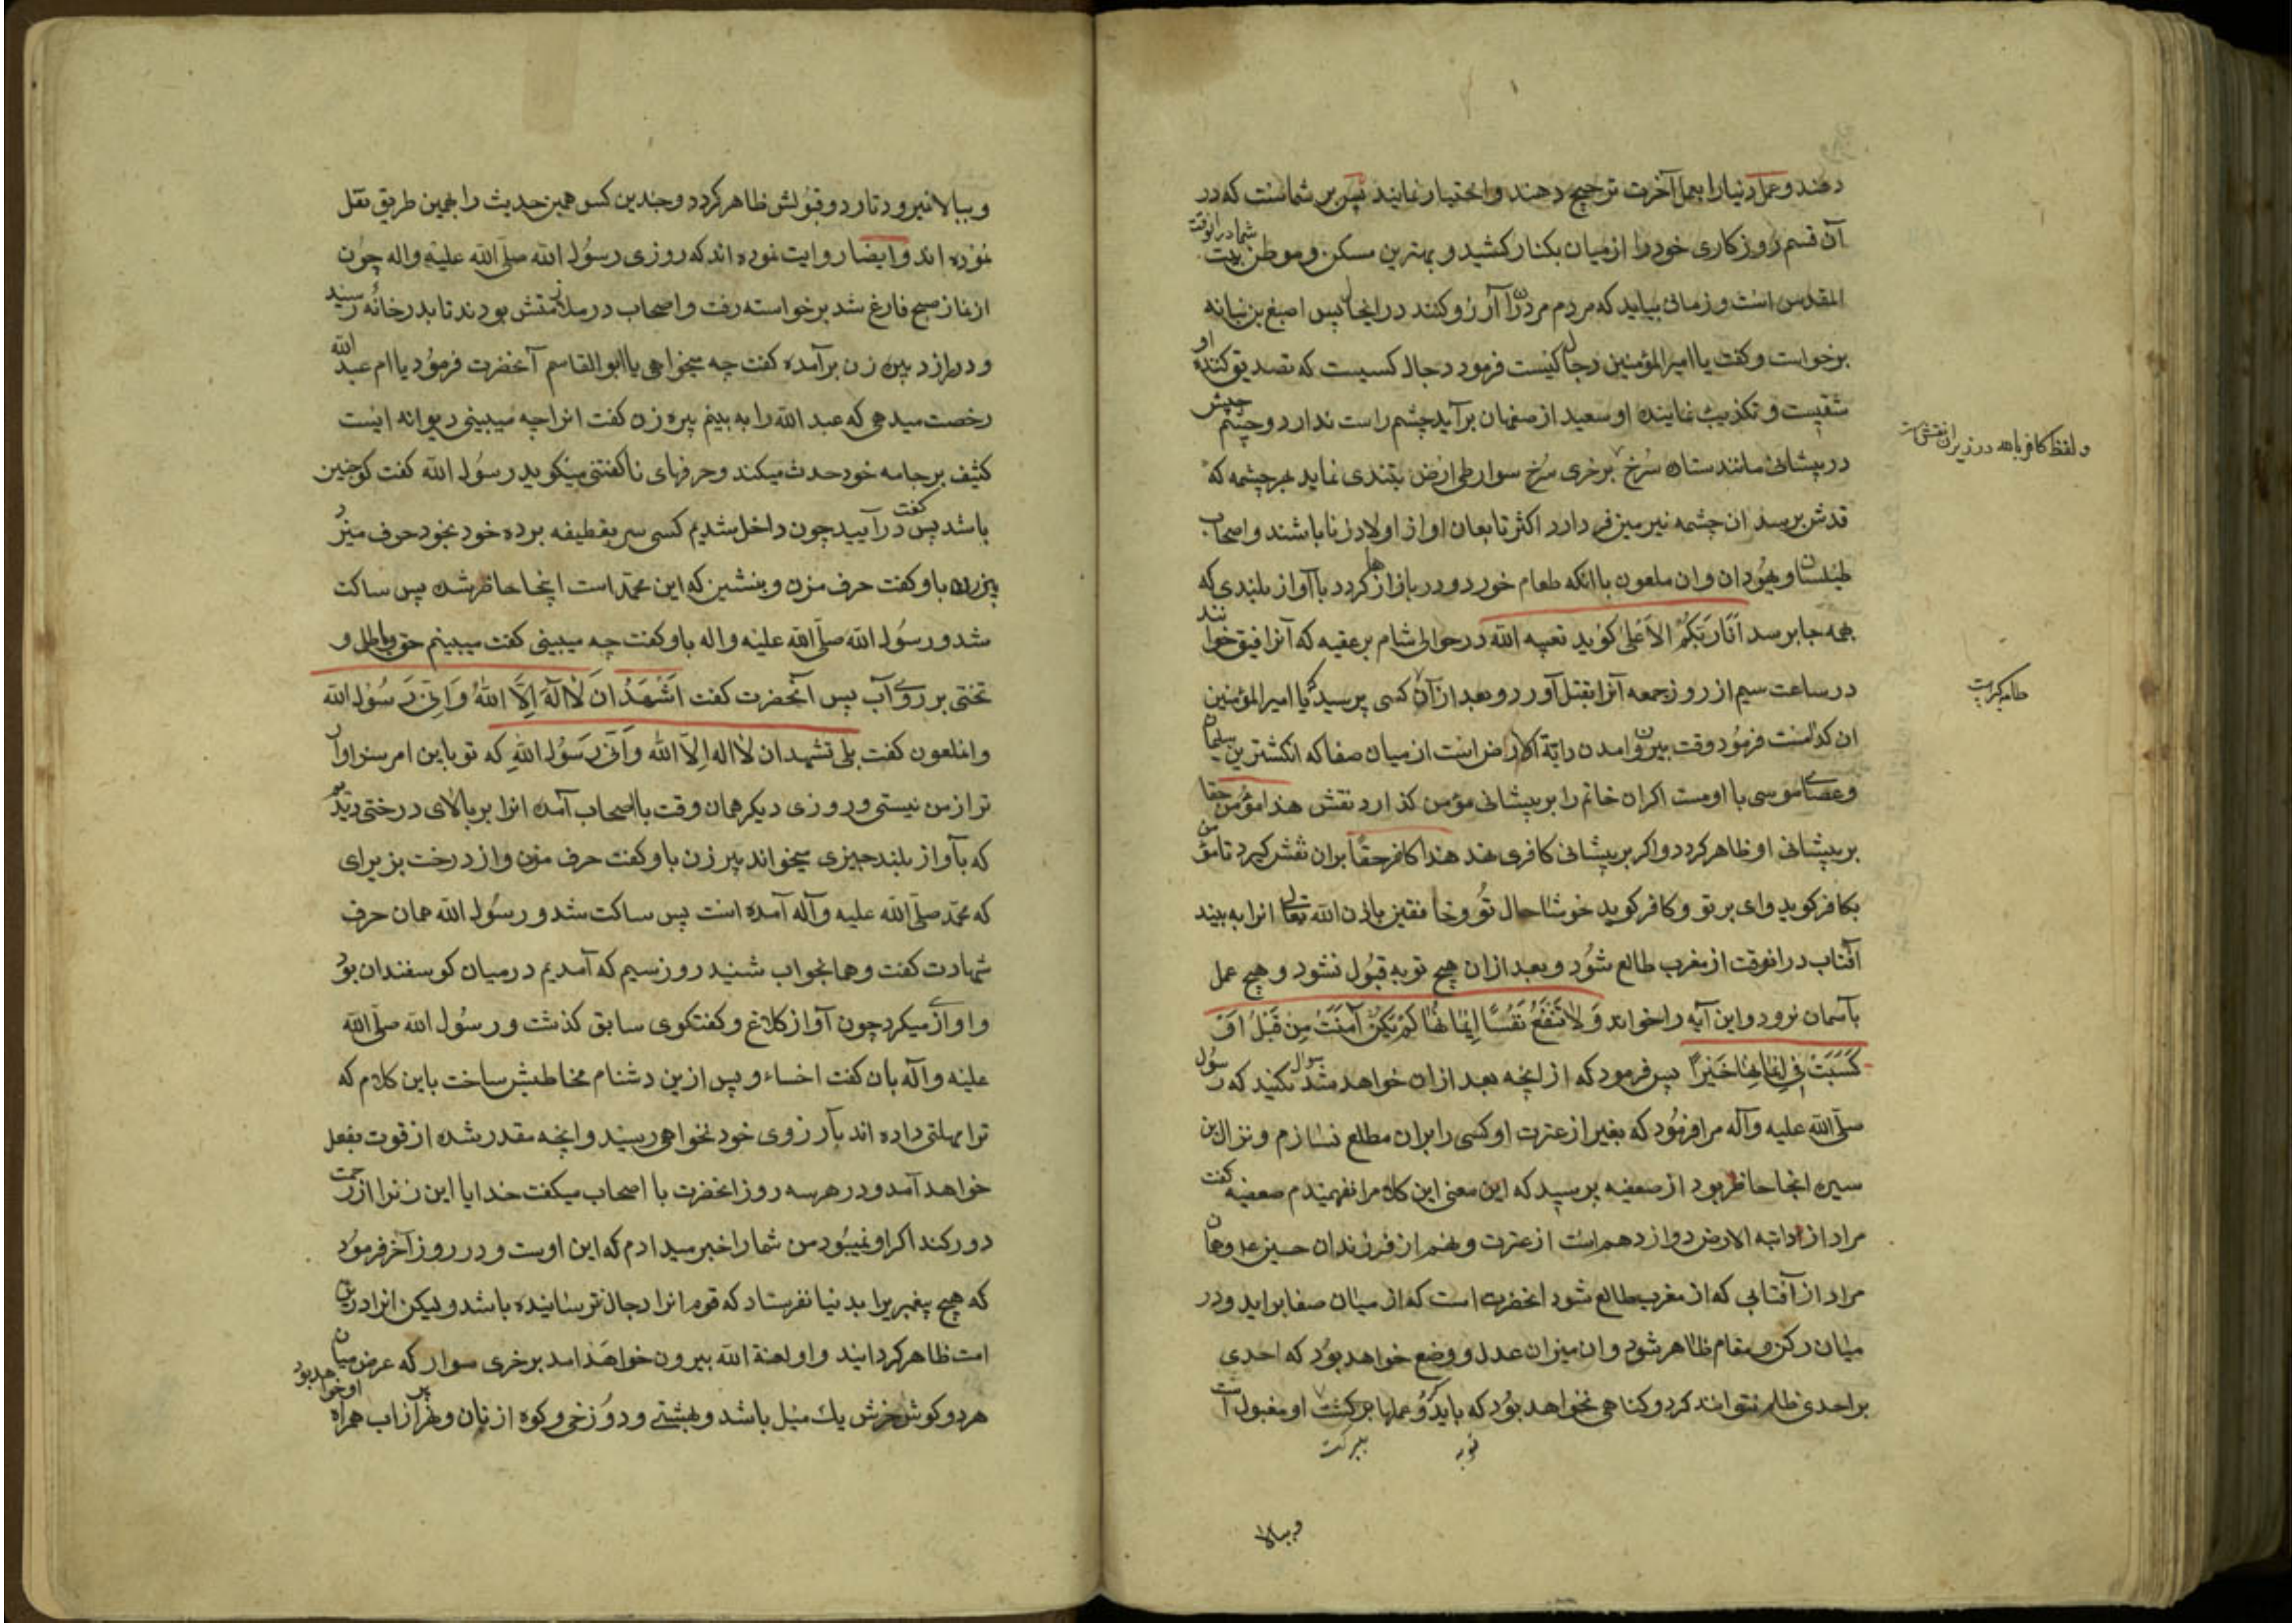 دهند و عمل دنیا را بعمل آخرت ترجیح دهند و اختیار نمایند پس بر شماست که در
آن قسم روزکاری خود را از میان بکنار کشید و بهترین مسکن و موطن شما در آنوقت بیت
المقدس است و زمانی بیاید که مردم مردن را آرزو کنند در انجا پس اصبغ بن نباته
برخواست و کفت یا امیر المؤمنین دجال کیست فرمود دجال کسیست که تصدیق کننده او
شقیست و تکذیب نماینده او سعید از صفهان برآید چشم راست ندارد و چشم چپش
در پیشانی مانند ستاره سرخ بر خری سرخ سوار طی ارض بتندی نماید بهر چشمه که
قدش برسد ان چشمه نیر میز فر دارد اکثر تابعان او از اولاد زنا باشند و اصحاب
طیلسان و یهودان و ان ملعون با انکه طعام خورد و در بازارها کردد با آواز بلندی که
بهمه جا برسد اَنَا رَبُّکُمُ الاَعْلی کوید تعبیه الله در حوالی شام بر عقبه که آنرا فیق خوانند
در ساعت سیم از روز جمعه آنرا بقتل آورد و بعد از آن کسی پرسید که یا امیر المؤمنین
ان کدامست فرمود وقت بیرون امدن دابة الارض است از میان صفا که انکشترین سلیمان
و عصای موسی با اوست اکر ان خاتم را بر پیشانی مؤمن کذارد نقش هذا مؤمن حقا
بر پیشانی او ظاهر کردد و اکر بر پیشانی کافری نهد هذا کافر حقاً بران نقش کیرد تا مؤمن
بکافر کوید وای بر تو و کافر کوید خوشا حال تو و خافقین باذن الله تعالی انرا به بیند
آفتاب در انوقت از مغرب طالع شود و بعد ازان هیچ توبه قبول نشود و هیچ عمل
بآسمان نرود و این آیه را خواند وَ لاَ تَنْفَعُ نَفْسًا اِیمَانُهَا لَمْ تَکُنْ آمَنَتْ مِن قَبْلُ اَوْ
کَسَبَتْ فِی اِیمَانِهَا خَیْرًا پس فرمود که از انچه بعد ازان خواهد شد سوال مکنید که رسول
صلّی الله علیه وآله مرا فرمود که بغیر از عترت او کسی را بران مطلع نسازم و نزال بن
سبره انجا حاظر بود از صعصه پرسید که این معنی این کلام را نفهمیدم صعصه کفت
مراد از دابته الارض دوازدهم است از عترت و نهم از فرزندان حسین ع و همان
مراد از آفتابی که از مغرب طالع شود انحضرت است که از میان صفا براید و در
میان رکن و مقام ظاهر شود و ان میزان عدل و وضع خواهد بود که احدی
بر احدی ظلم نتواند کرد و کناهی نخواهد بود که باید کرد و عملها بر کشت او مقبول است
توبه
و ببالا
و لفظ کافر باهد در زیر ان نقش است
و ببالا نیرود تا رد و قبولش ظاهر کردد و چندین کس همین حدیث را بهمین طریق نقل
نموده اند و ایضا روایت نموده اند که روزی رسول الله صلّی الله علیه واله چون
از نماز صبح فارغ شد برخواسته رفت و اصحاب در ملازمتش بودند تا بدر خانهٔ رسید
و در را زد پیره زن برآمده کفت چه میخواهی یا ابو القاسم آنحضرت فرمود یا ام عبد الله
رخصت میدهی که عبد الله را به بینم پیره زن کفت انرا چه میبینی دیوانه ایست
کثیف بر جامه خود حدث میکند و حرفهای ناکفتنی میکوید رسول الله کفت کو چنین
باشد پس کفت درآیید چون داخل شدیم کسی سر بقطیفه برده خود بخود حرف میزد
پیزن باو کفت حرف مزن و بنشین که این محمد است اینجا حاظر شده پس ساکت
شد و رسول الله صلّی الله علیه واله باو کفت چه میبینی کفت میبینم حق و باطل و
تختی بر روی آب پس آنحضرت کفت اَشْهَدُ اَنْ لاَ اِلَهَ اِلاَّ اللهُ وَ اَنِّی رَسُولُ الله
و انملعون کفت بلی تشهد ان لا اله الا الله و انی رسول الله که تو باین امر سزاوارتر
تر از من نیستی و روزی دیکر همان وقت با اصحاب آمده انرا بر بالای درختی دیدیم
که بآواز بلند چیزی میخواند پیر زن باو کفت حرف مزن و از درخت بزیر ای
که محمد صلّی الله علیه وآله آمده است پس ساکت شد و رسول الله همان حرف
شهادت کفت و همانجواب شنید روز سیم که آمدیم در میان کوسفندان بود
و اوازی میکرد چون آواز کلاغ و کفتکوی سابق کذشت و رسول الله صلّی الله
علیه وآله بان کفت اخساء و پس ازین دشنام مخاطبش ساخت باین کلام که
ترا مهلتی داده اند بآرزوی خود نخواهی رسید و انچه مقدر شده از قوت بفعل
خواهد آمد و در هر سه روز انحضرت با اصحاب میکفت خدایا این زنرا از رحمت
دور کند اکر او نمیبود من شما را خبر میدادم که این اوست و در روز آخر فرمود
که هیچ پیغمبریرا بدنیا نفرستاد که قوم انرا دجال ترساینده باشد و لیکن انرا درین
امت ظاهر کردانید و او لعنة الله بیرون خواهد امد بر خری سوار که عرض میان
هر دو کوش خرش یك میل باشد و بهشتی و دوزخی و کوه از نان و نهر از اب همراه او خواهد بود